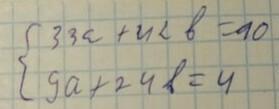 33a + 42b = 90
9a + 24b = 4